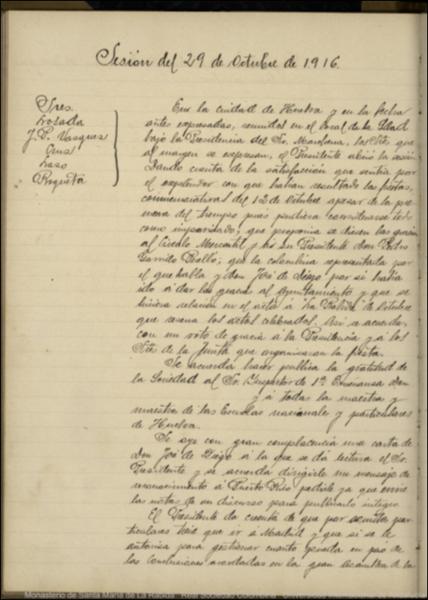 Sesión del 29 de Octubre de 1916.
Sres.
Losada
J. P. Vazquez
Cruz
Laso
Rogueta
En la ciudad de Huelva y en la fecha
antes expresada, reunidos en el local de la Sdad
bajo la Presidencia del Sr. Marchena, los Sres que
al margen se expresan, el Presidente abrió la sesión
dando cuenta de la satisfacción que sentía por
el esplendor con que habían resultado las fiestas
conmemorativas del 12 de Octubre apesar de la pre-
mura del tiempo pues pudiera considerarse todo
como improvisado; que proponía se diesen las gracias
al Círculo Mercantil y á su Presidente Don Pedro
Garrido Perelló; que la colombina representada por
el que habla y don José de Diego por si había
ido á dar las gracias al Ayuntamiento y que se
hiciera relación en el acta á "La Rábida" de Octubre
que reseña los actos celebrados. Así se acuerda,
con un voto de gracia á la Presidencia y á los
Sres de la Junta que organizaron la fiesta.
Se acuerda hacer pública la gratitud de
la Sociedad al Sr. Inspector de 1ª Enseñanza Don
y á todos los maestros y
maestras de las Escuelas nacionales y particulares
de Huelva.
Se oye con gran complacencia una carta de
Don José de Diego á la que se dá lectura el Sr.
Presidente y se acuerda dirigirle un mensaje de
reconocimiento á Puerto Rico pedirle ya que envíe
las notas de su discurso para publicarlo integro.
El Presidente da cuenta de que por asuntos par-
ticulares tiene que ir á Madrid y que si se le
autoriza para gestionar cuanto pueda en pro de
las conferencias acordadas en la gran asamblea de la
Monasterio de Santa María de La Rábida